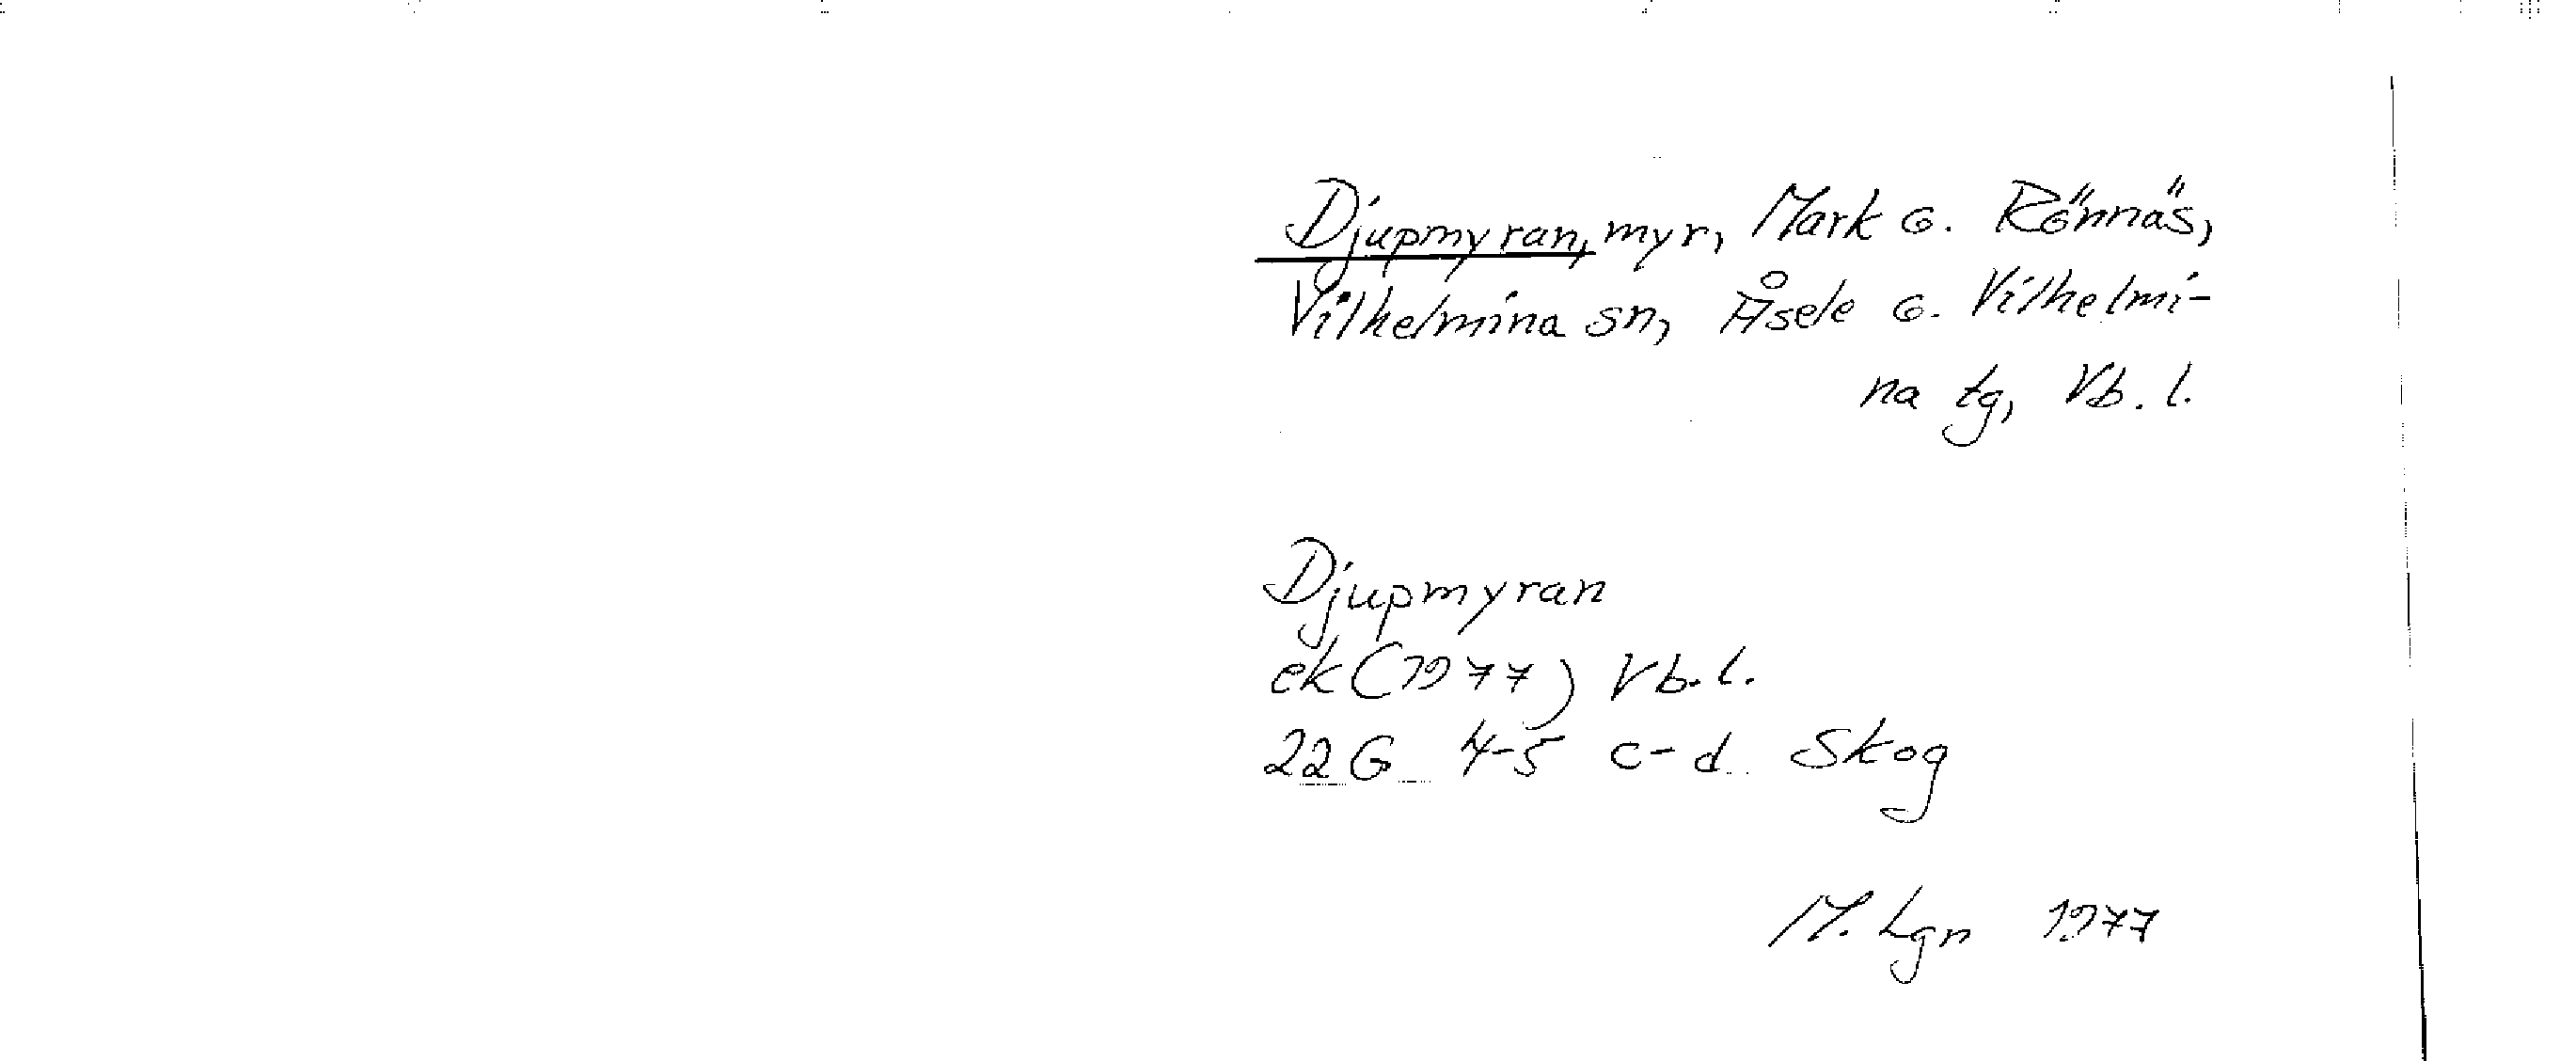 Djupmyran, myr, Mark o. Rönnäs,
Vilhelmina sn, Åsele o. Vilhelmi-
na tg, Vb. l.
Djupmyran
ek (1977) Vb. l.
22 G 4-5 c-d Skog
M. Lgn 1977